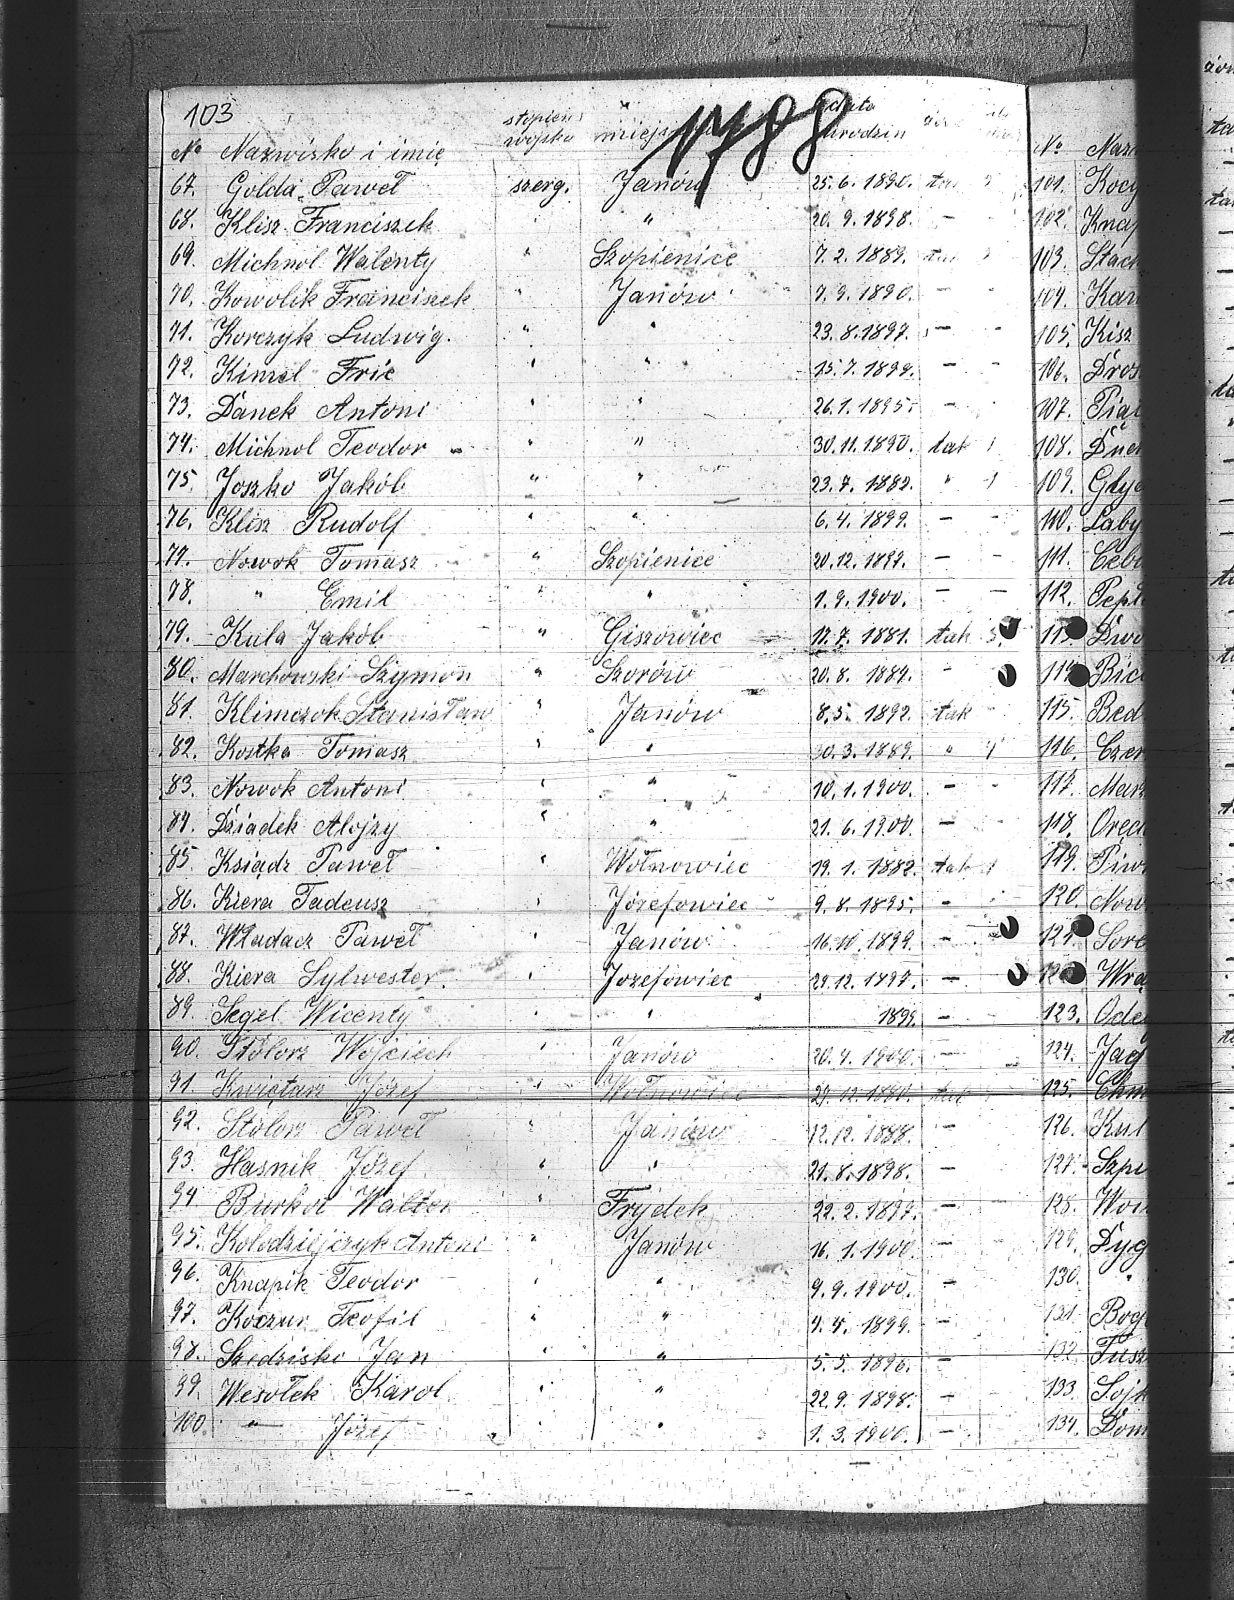 103
1788
No Nazwisko i imię stopień wojska data urodzin
67. Golda Paweł szerg. Janów 25.6.1890. tak
68. Klisz Franciszek " " 20.9.1898. -
69. Michnol Walenty " Szopienice 7.2.1889. tak
70. Kowolik Franciszek " Janów 7.9.1890. - -
71. Korczyk Ludwig. " " 23.8.1897. - -
72. Kimel Fric " " 15.7.1899. - -
73. Danek Antoni " " 26.1.1895. - -
74. Michnol Teodor " " 30.11.1890. tak 1
75. Joszko Jakób " " 23.7.1882. " 1
76. Klisz Rudolf " " 6.4.1899. - -
77. Nowok Tomasz " Szopienice 20.12.1897. - -
78. " Emil " " 1.9.1900. - -
79. Kula Jakób " Giszowiec 17.7.1881. tak 3.
80. Marchowski Szymon " Szorów 20.8.1884. -
81. Klimczok Stanisław " Janów 8.5.1892. tak -
82. Kostka Tomasz " " 30.3.1889. "
83. Nowok Antoni " " 10.1.1900. - -
84. Dziadek Alojzy " " 21.6.1900. - -
85. Ksiądz Paweł " Wołnowiec 19.1.1882. tak 1
86. Kiera Tadeusz " Józefowiec 9.8.1895. - -
87. Władacz Paweł " Janów 16.10.1899. -
88. Kiera Sylwester. " Jozefowiec 29.12.1897. -
89. Segel Wicenty " " 1899. -
90. Stolorz Wojciech " Janów 20.4.1900. -
91. Kwiętarz Józef " Wołnowiec 29.12.1880. tak
92. Stolorz Paweł " Janów 12.12.1888. -
93. Hasnik Józef " " 21.8.1898. -
94 Burkot Walter " Frydek 22.2.1897. -
95. Kolodziejczyk Antoni " Janów 16.1.1900. -
96. Knapik Teodor " " 9.9.1900. -
97. Koczur Teofil " " 4.4.1899. -
98. Szedzisko Jan " " 5.5.1896. -
99. Wesołek Karol " " 22.9.1898. -
100. " Józef " 1.3.1900. -
No Naz
101. Kocy
102. Knap
103. Stach
104. Kar
105. Kisz
106. Dros
107.
108.
109. Głyc
110. Laby
111. Ceb
112. Pepl
113. Dwo
114. Bie
115. Bed
116. Czer
117. Mar
118. Orec
119. Piw
120. Now
121. Sore
123. Ode
124. Jag
125.
126. Kul
127. Szpi
128. Wou
129. Dyg
130. "
131. Bog
132. Tusz
133. Sojk
134. Dom